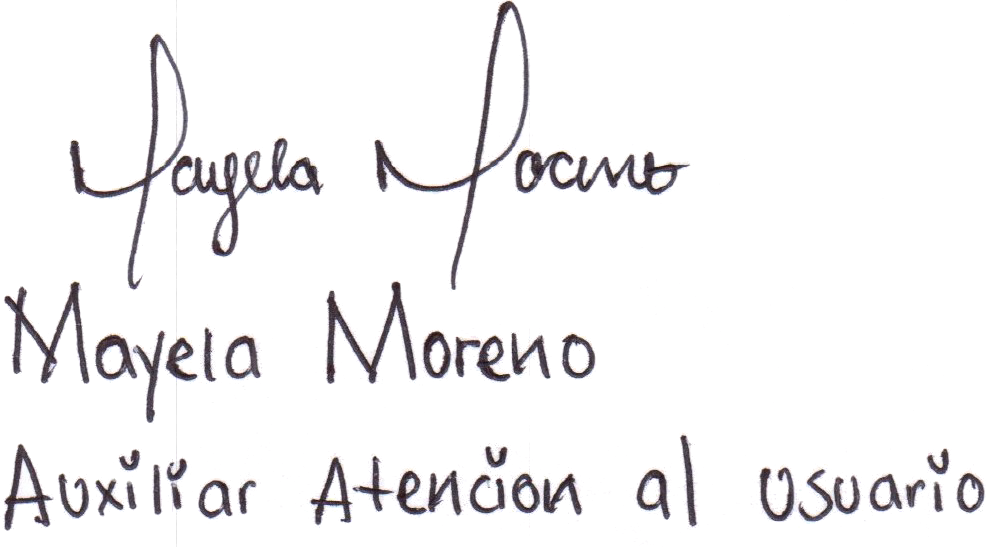 Mayela Moreno
Mayela Moreno
Auxiliar Atencion al usuario